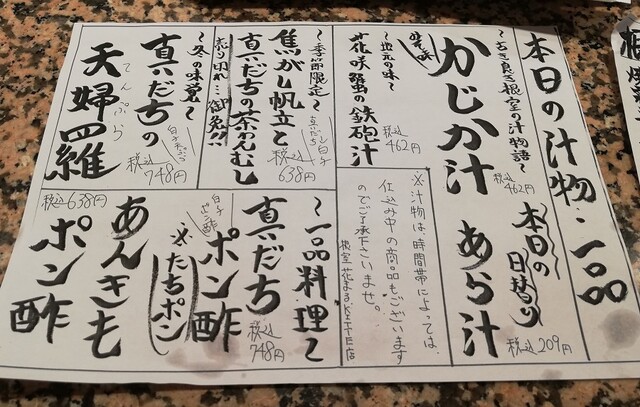 本日の汁物・一品
〜古き良き根室の汁物語〜
かじか汁
みそ味
税込
462円
本日の
日替り
あら汁
税込 209円
〜地元の味〜
花咲蟹の鉄砲汁
税込
462円
※汁物は、時間帯によっては、
仕込み中の商品もございます
のでご了承下さいませ。
根室花まる
〜季節限定〜
焦がし帆立と
真だちの茶わんむし
売り切れ…御免!!
税込
638円
〜冬の味覚〜
真だちの
天婦羅
てんぷら
税込
748円
〜一品料理〜
真だち
ポン酢
白子
ポン酢
※たちポン
税込
748円
あんきも
ポン酢
税込638円